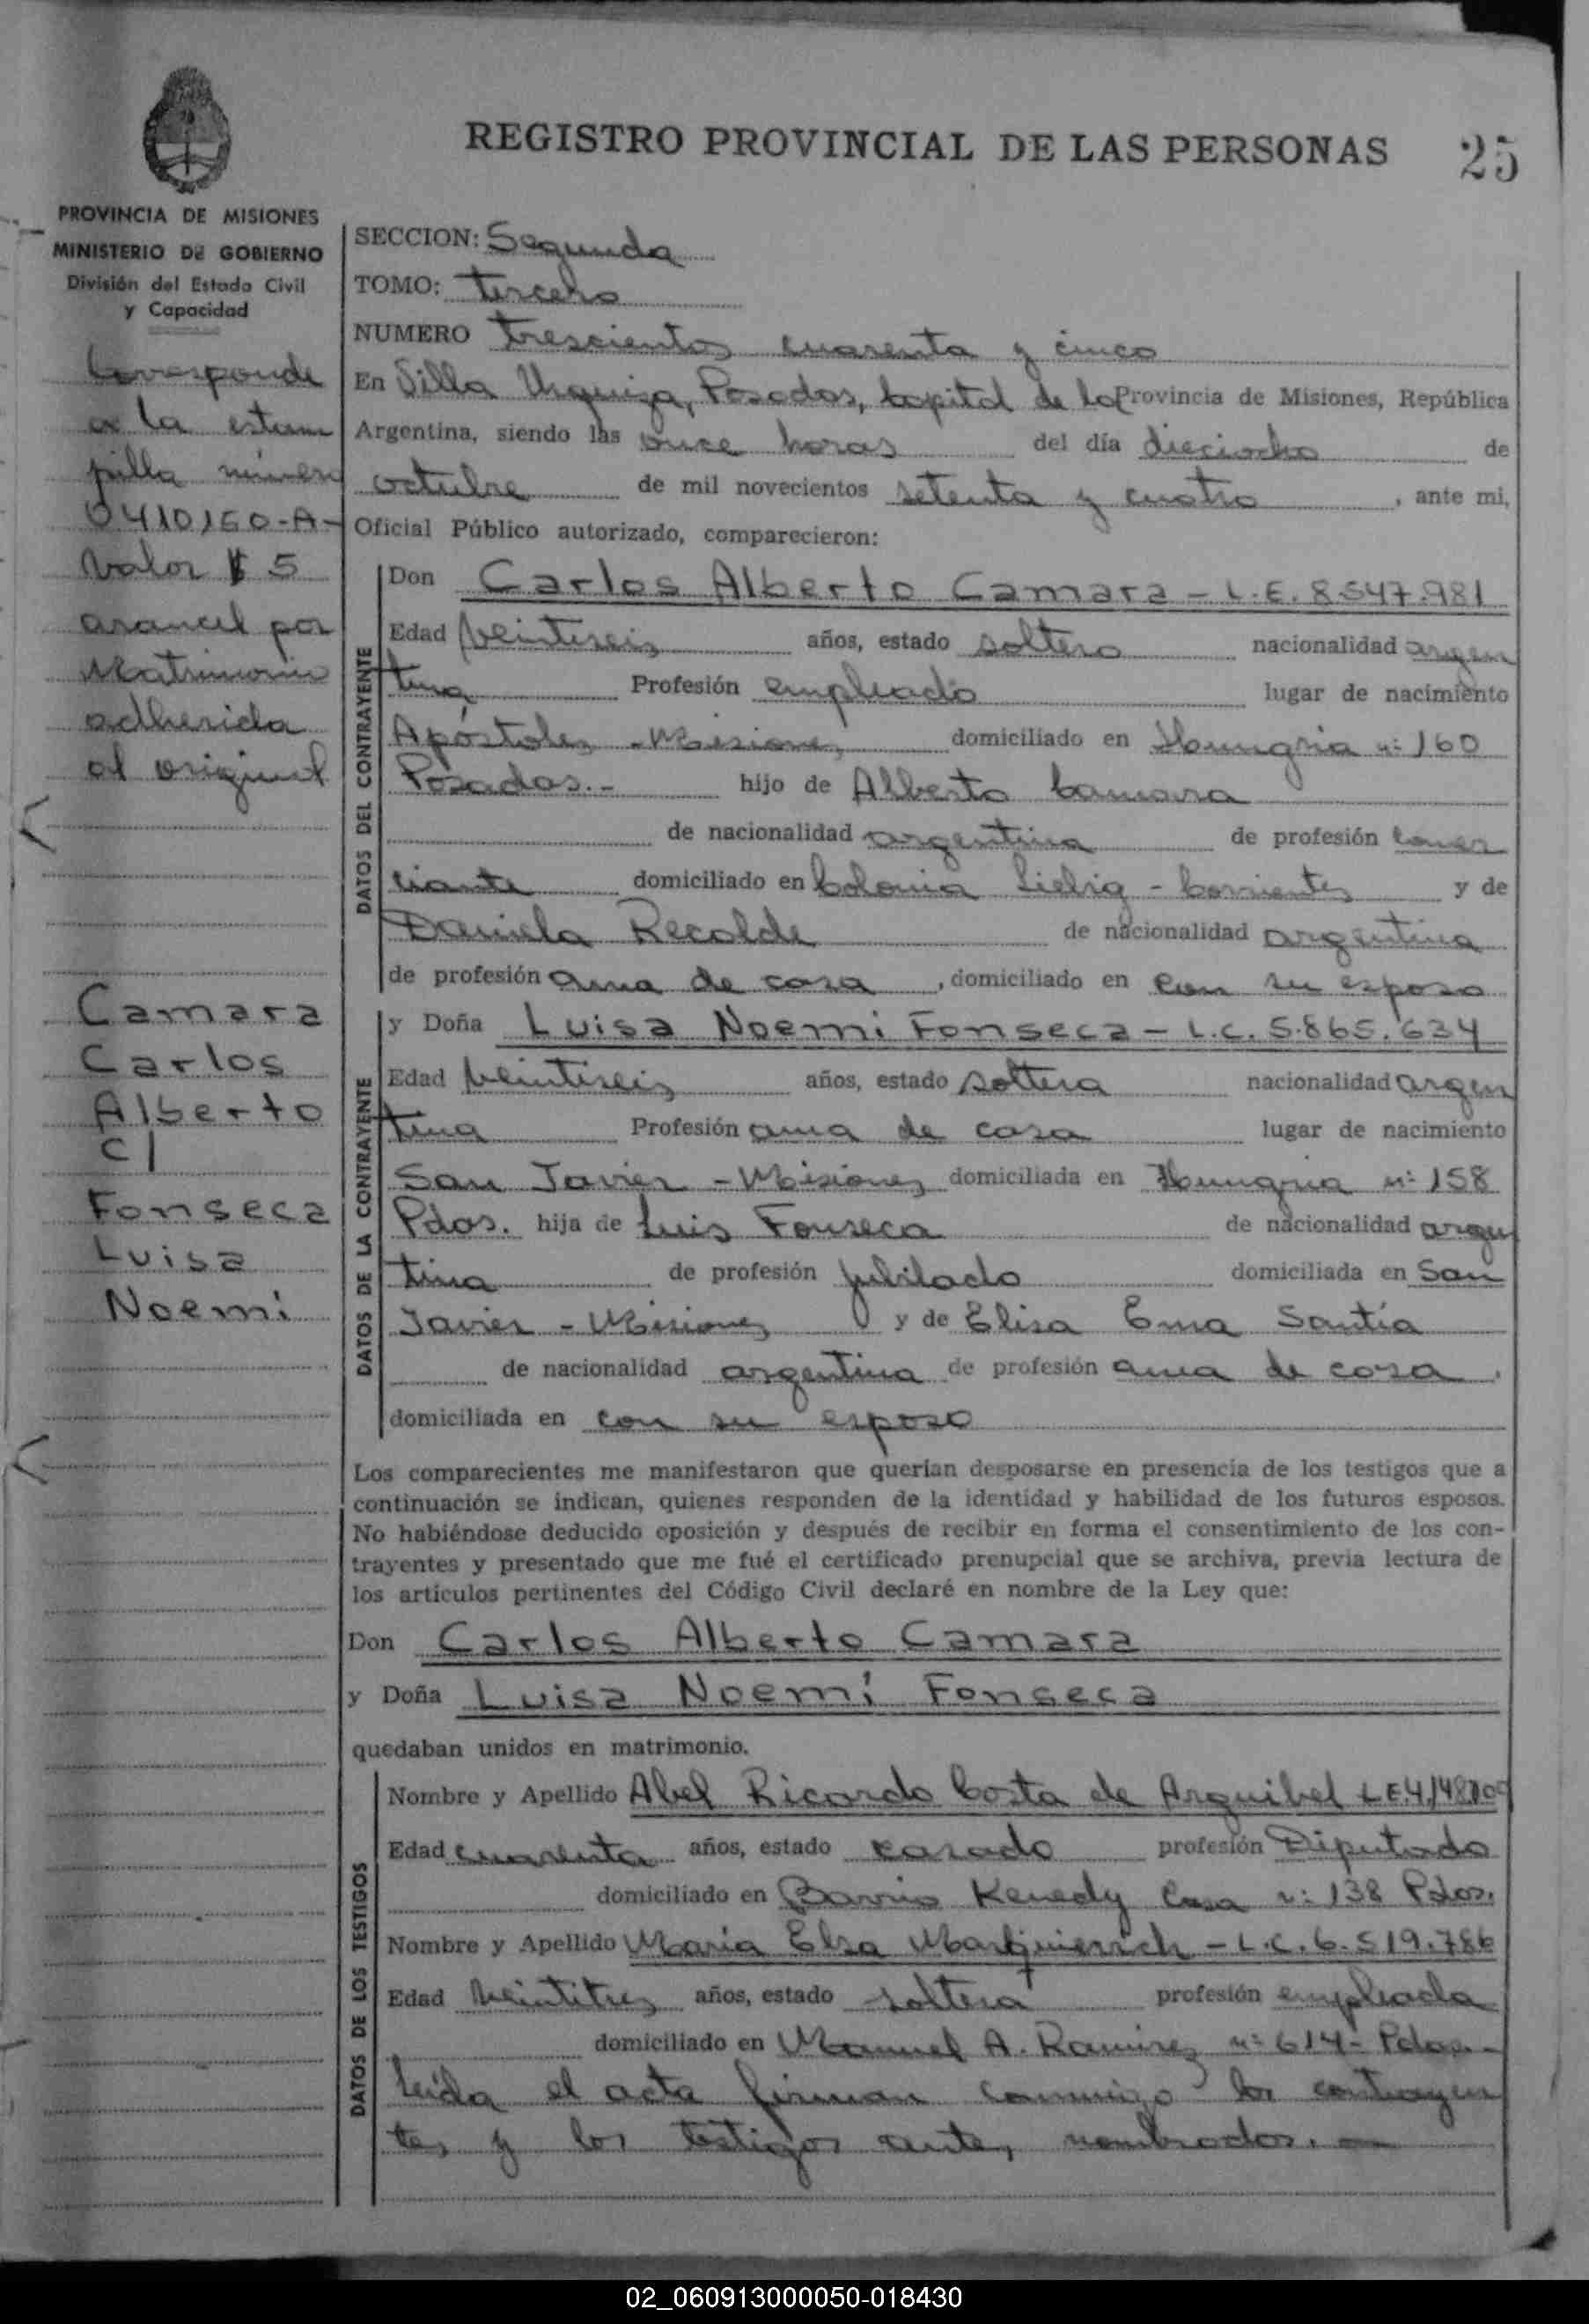 REGISTRO PROVINCIAL DE LAS PERSONAS 25
PROVINCIA DE MISIONES
MINISTERIO DE GOBIERNO
División del Estado Civil
y Capacidad
Corresponde
a la estam
pilla número
0410160-A-
Valor $ 5
arancel por
Matrimonio
adherida
al original
Camara
Carlos
Alberto
C/
Fonseca
Luisa
Noemí
SECCION: Segunda
TOMO: tercero
NUMERO trescientos cuarenta y cinco
En Villa Urquiza, Posadas, Capital de la Provincia de Misiones, República
Argentina, siendo las once horas del día dieciocho de
octubre de mil novecientos setenta y cuatro, ante mi,
Oficial Público autorizado, comparecieron:
DATOS DEL CONTRAYENTE
Don Carlos Alberto Camara - L.E. 8.547.981
Edad veintiseis años, estado soltero nacionalidad argen
tina Profesión empleado lugar de nacimiento
Apóstoles - Misiones domiciliado en Hungria nº 160
Posadas.- hijo de Alberto Camara
de nacionalidad argentina de profesión comer
ciante domiciliado en Colonia Liebig - Corrientes y de
Daniela Recalde de nacionalidad argentina
de profesión ama de casa, domiciliado en con su esposo
DATOS DE LA CONTRAYENTE
y Doña Luisa Noemi Fonseca - L.C. 5.865.634
Edad veintiseis años, estado soltera nacionalidad argen
tina Profesión ama de casa lugar de nacimiento
San Javier - Misiones domiciliada en Hungria nº 158
Pdas. hija de Luis Fonseca de nacionalidad argen
tina de profesión jubilado domiciliada en San
Javier - Misiones y de Elisa Ema Santía
de nacionalidad argentina de profesión ama de casa,
domiciliada en con su esposo
Los comparecientes me manifestaron que querían desposarse en presencia de los testigos que a
continuación se indican, quienes responden de la identidad y habilidad de los futuros esposos.
No habiéndose deducido oposición y después de recibir en forma el consentimiento de los con-
trayentes y presentado que me fué el certificado prenupcial que se archiva, previa lectura de
los artículos pertinentes del Código Civil declaré en nombre de la Ley que:
Don Carlos Alberto Camara
y Doña Luisa Noemí Fonseca
quedaban unidos en matrimonio.
DATOS DE LOS TESTIGOS
Nombre y Apellido Abel Ricardo Costa de Arguibel L.E.
Edad cuarenta años, estado casado profesión Diputado
domiciliado en Barrio Kenedy Casa nº 138 Pdas.
Nombre y Apellido Maria Elsa - L.C. 6.519.786
Edad veintitres años, estado soltera profesión empleada
domiciliado en Manuel A. Ramirez nº 614- Pdas.-
Leída el acta firman conmigo los contrayen
tes y los testigos antes nombrados.
02_060913000050-018430